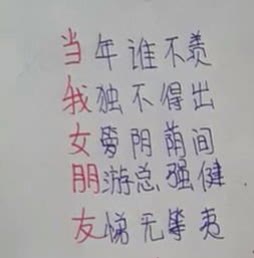 当年谁不羡
我独不得出
女萝阴荫间
朋游总强健
友悌无等夷